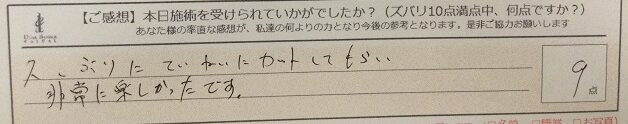 【ご感想】本日施術を受けられていかがでしたか？（ズバリ10点満点中、何点ですか？）
あなた様の率直な感想が、私達の何よりの力となり今後の参考となります。是非ご協力お願いします
久しぶりにていねいにカットしてもらい
非常に楽しかったです。
9
点